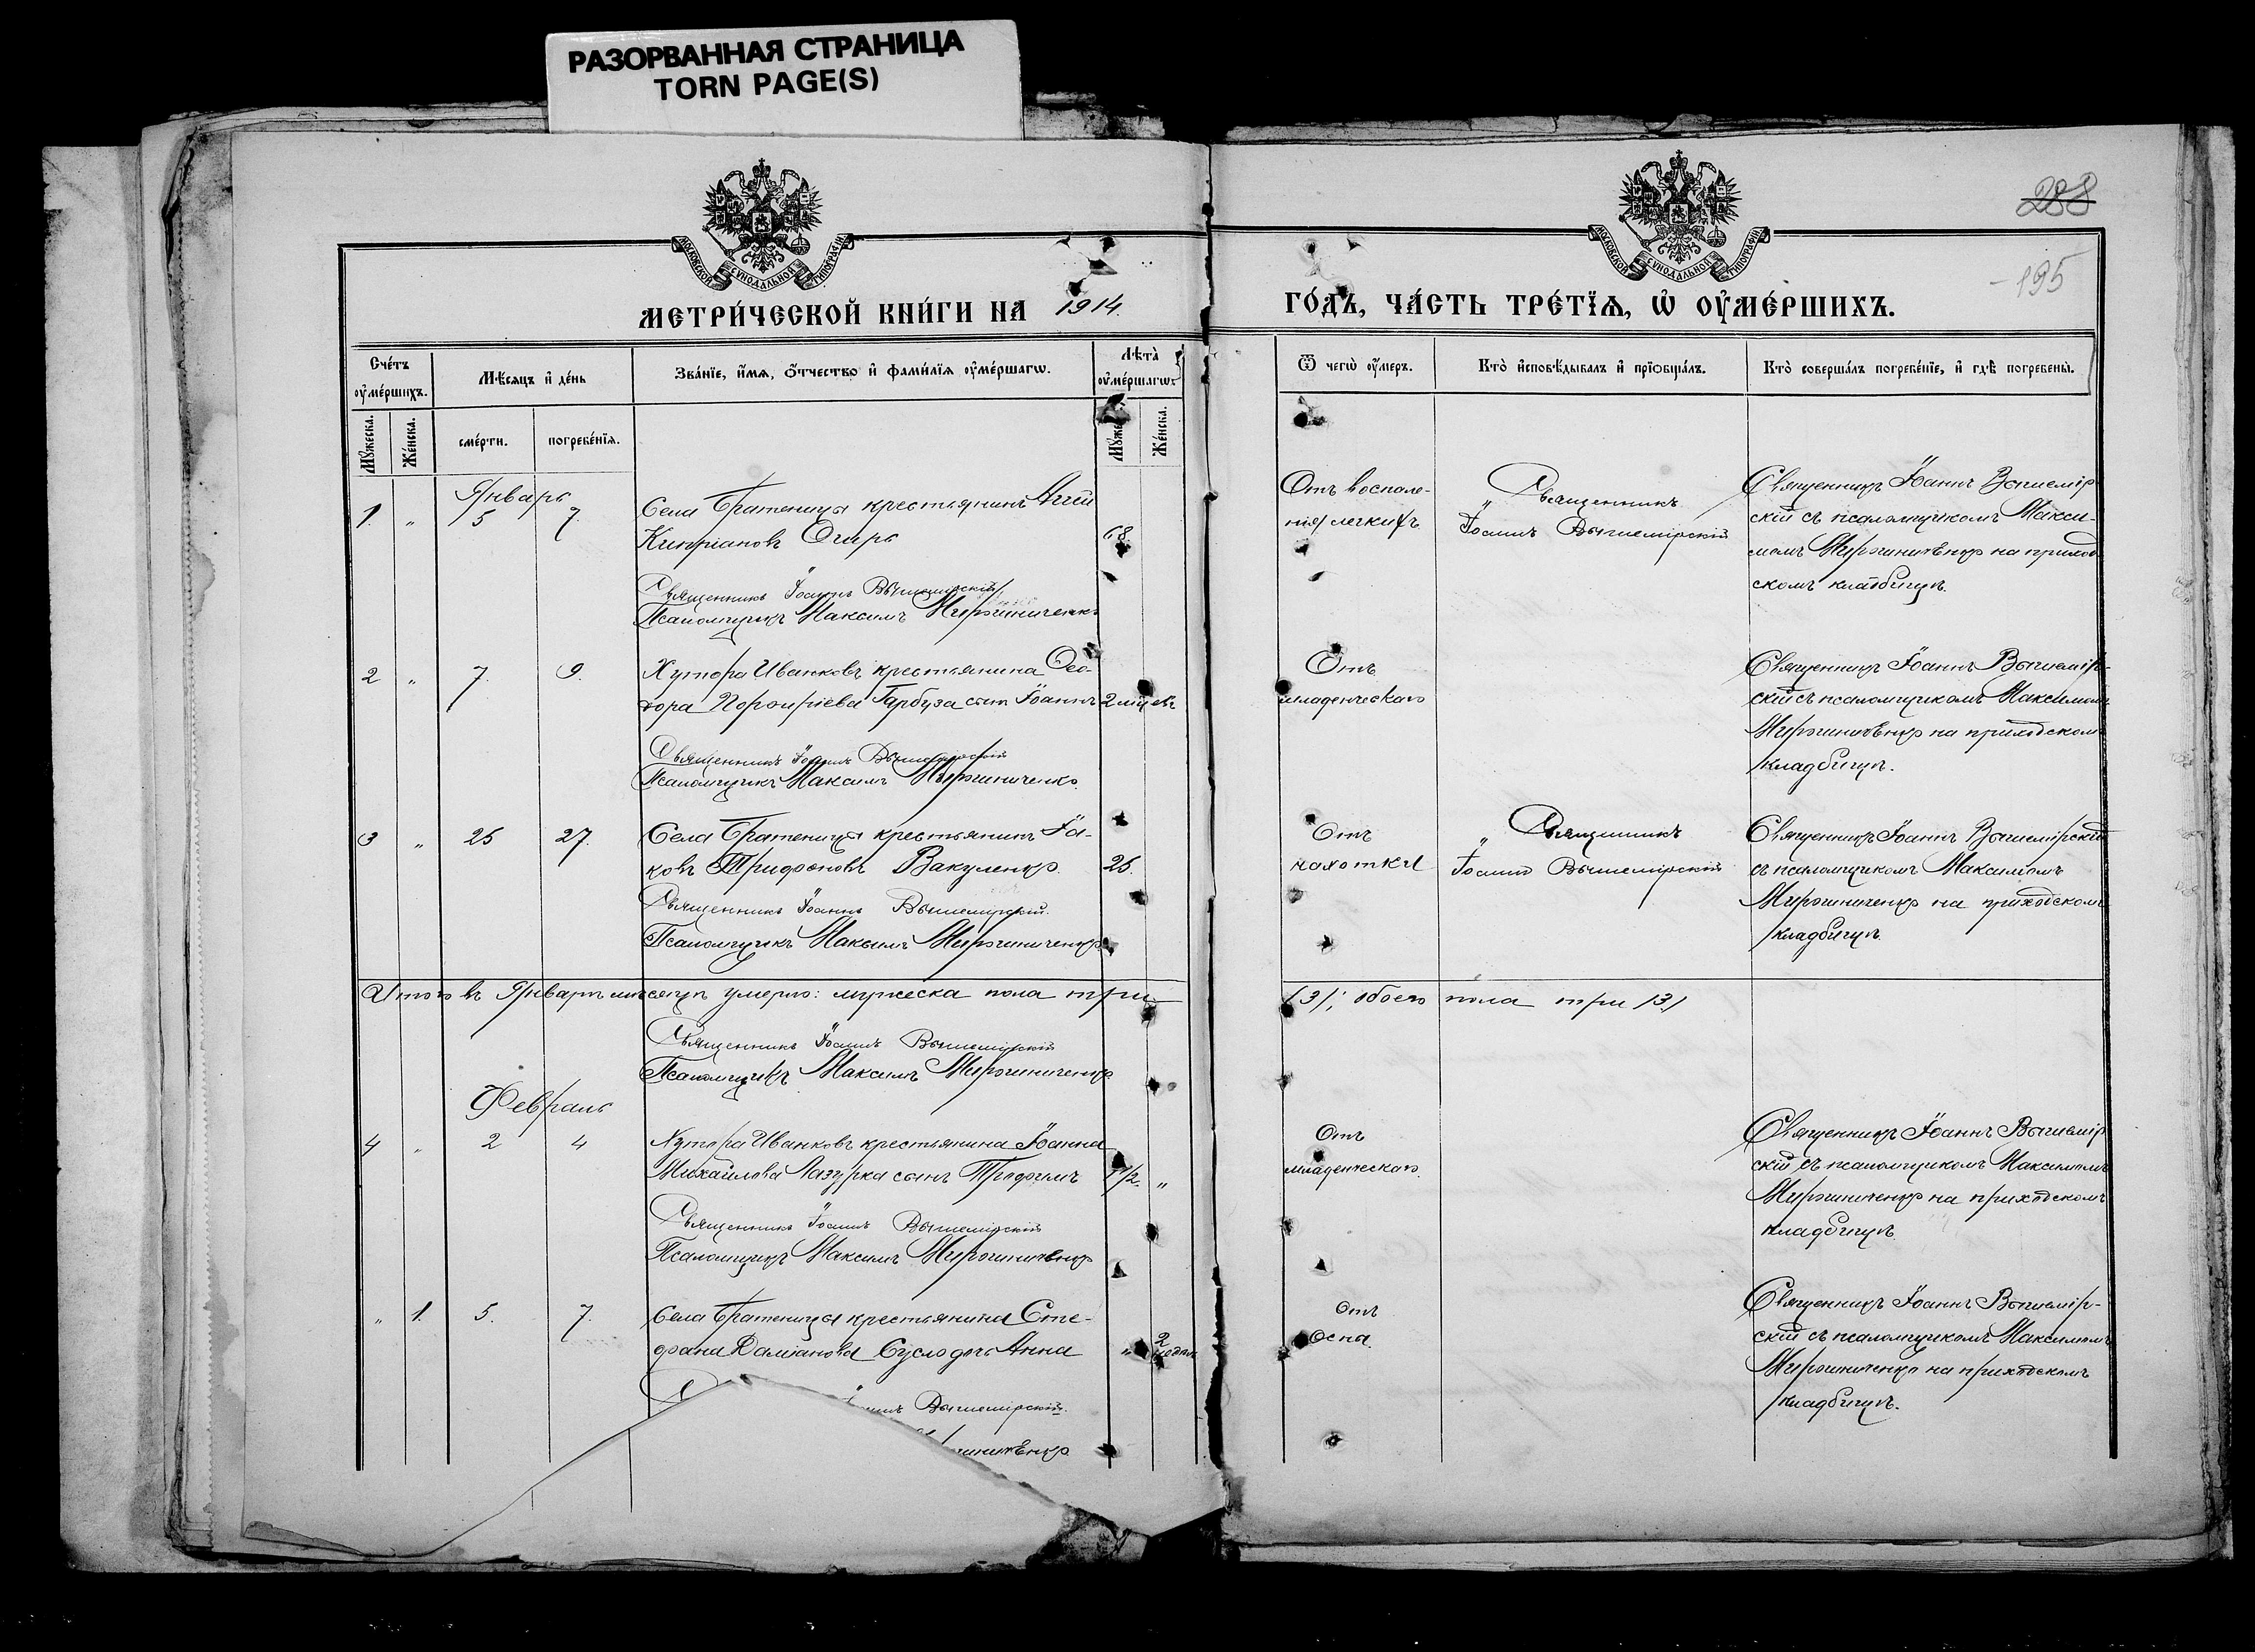 РАЗОРВАННАЯ СТРАНИЦА
TORN PAGE(S)
288
195
МОСКОВСКОЙ СУНОДАЛЬНОЙ ТИПОГРАФІИ
МОСКОВСКОЙ СУНОДАЛЬНОЙ ТИПОГРАФІИ
МЕТРИ́ЧЕСКОЙ КНИ́ГИ НА 1914.
ГО́ДЪ, ЧА́СТЬ ТРЕ́ТЇѦ, Ѡ҆ ОУ҆МЕ́РШИХЪ.
Сче́тъ оу҆ме́ршихъ.
Мѣ́сяцъ и҆ де́нь
Зва́нїе, и҆́мя, ѻ҆́тчество и҆ фами́лїя оу҆ме́ршагѡ.
Лѣта̀ оу҆ме́ршагѡ
Ѿ чегѡ̀ оу҆́меръ.
Кто̀ и҆сповѣ́дывалъ и҆ прїѡбща́лъ.
Кто̀ соверша́лъ погребе́нїе, и҆ гдѣ̀ погребены̀.
Мꙋ́жеска.
Же́нска.
сме́рти.
погребе́нїя.
Же́нска.
Январь
1. " 5 7. Села Братеницы крестьянинъ Аггей
Кипріановъ Огирь 68.
Священникъ Іоаннъ Вышемірскій
Псаломщикъ Максимъ Мирошниченко
Отъ воспале-
нія легкихъ
Священникъ
Іоаннъ Вышемірскій
Священникъ Іоаннъ Вышемір-
скій съ псаломщикомъ Макси-
момъ Мирошниченко на приход-
скомъ кладбищѣ.
2 " 7. 9. Хутора Иванковъ крестьянина Ѳео-
дора Порфиріева Гарбуза сынъ Іоаннъ 2
Священникъ Іоаннъ Вышемірскій
Псаломщикъ Максимъ Мирошниченко
Отъ
младенческаго
Священникъ Іоаннъ Вышемір-
скій съ псаломщикомъ Максимомъ
Мирошниченко на приходскомъ
кладбищѣ.
3 " 25 27. Села Братеницы крестьянинъ Іа-
ковъ Трифоновъ Вакуленко. 25.
Священникъ Іоаннъ Вышемірскій.
Псаломщикъ Максимъ Мирошниченко
Отъ
чахотки
Священникъ
Іоаннъ Вышемірскій
Священникъ Іоаннъ Вышемірскій
съ псаломщикомъ Максимомъ
Мирошниченко на приходскомъ
кладбищѣ.
Итого въ Январѣ мѣсяцѣ умерло: мужеска пола три
/3/; обоего пола три /3/
Священникъ Іоаннъ Вышемірскій
Псаломщикъ Максимъ Мирошниченко
Февраль
4 " 2 4 Хутора Иванковъ крестьянина Іоанна
Михайлова Лазурка сынъ Трофимъ "
Священникъ Іоаннъ Вышемірскій
Псаломщикъ Максимъ Мирошниченко
Отъ
младенческаго.
Священникъ Іоаннъ Вышемір-
скій съ псаломщикомъ Максимомъ
Мирошниченко на приходскомъ
кладбищѣ.
" 1. 5. 7. Села Братеницы крестьянина Сте-
фана Даміанова Сусло дочь Анна " 2
Вышемірскій.
Отъ
Оспа.
Священникъ Іоаннъ Вышемір-
скій съ псаломщикомъ Максимомъ
Мирошниченко на приходскомъ
кладбищѣ.